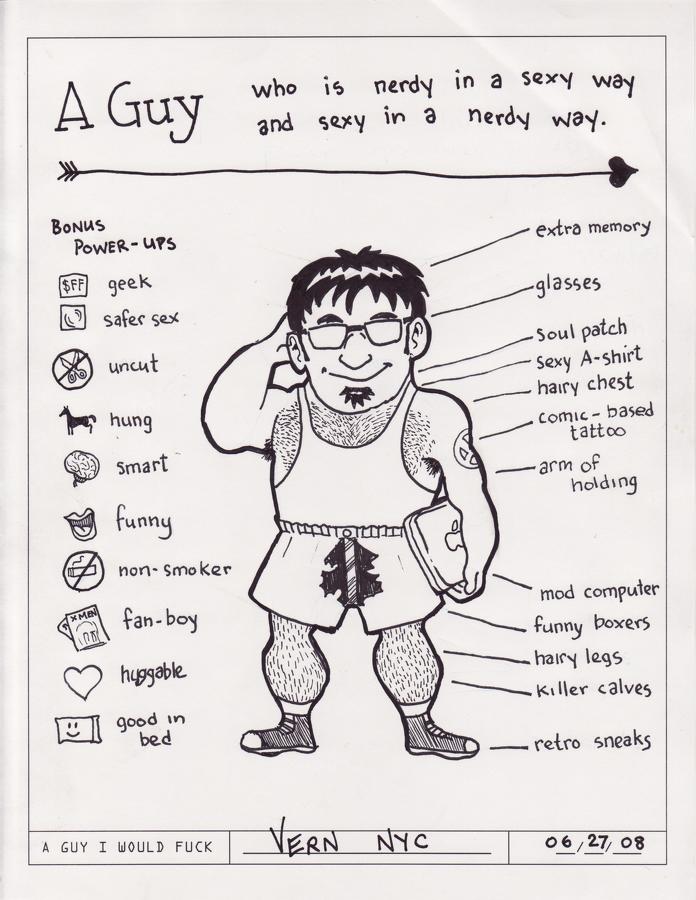 A Guy
who is nerdy in a sexy way
and sexy in a nerdy way.
BONUS
POWER-UPS
$FF
geek
safer sex
uncut
hung
smart
funny
non-smoker
X MEN
fan-boy
huggable
good in
bed
extra memory
glasses
soul patch
sexy A-shirt
hairy chest
comic-based
tattoo
arm of
holding
mod computer
funny boxers
hairy legs
killer calves
retro sneaks
A GUY I WOULD FUCK
VERN NYC
06/27/08